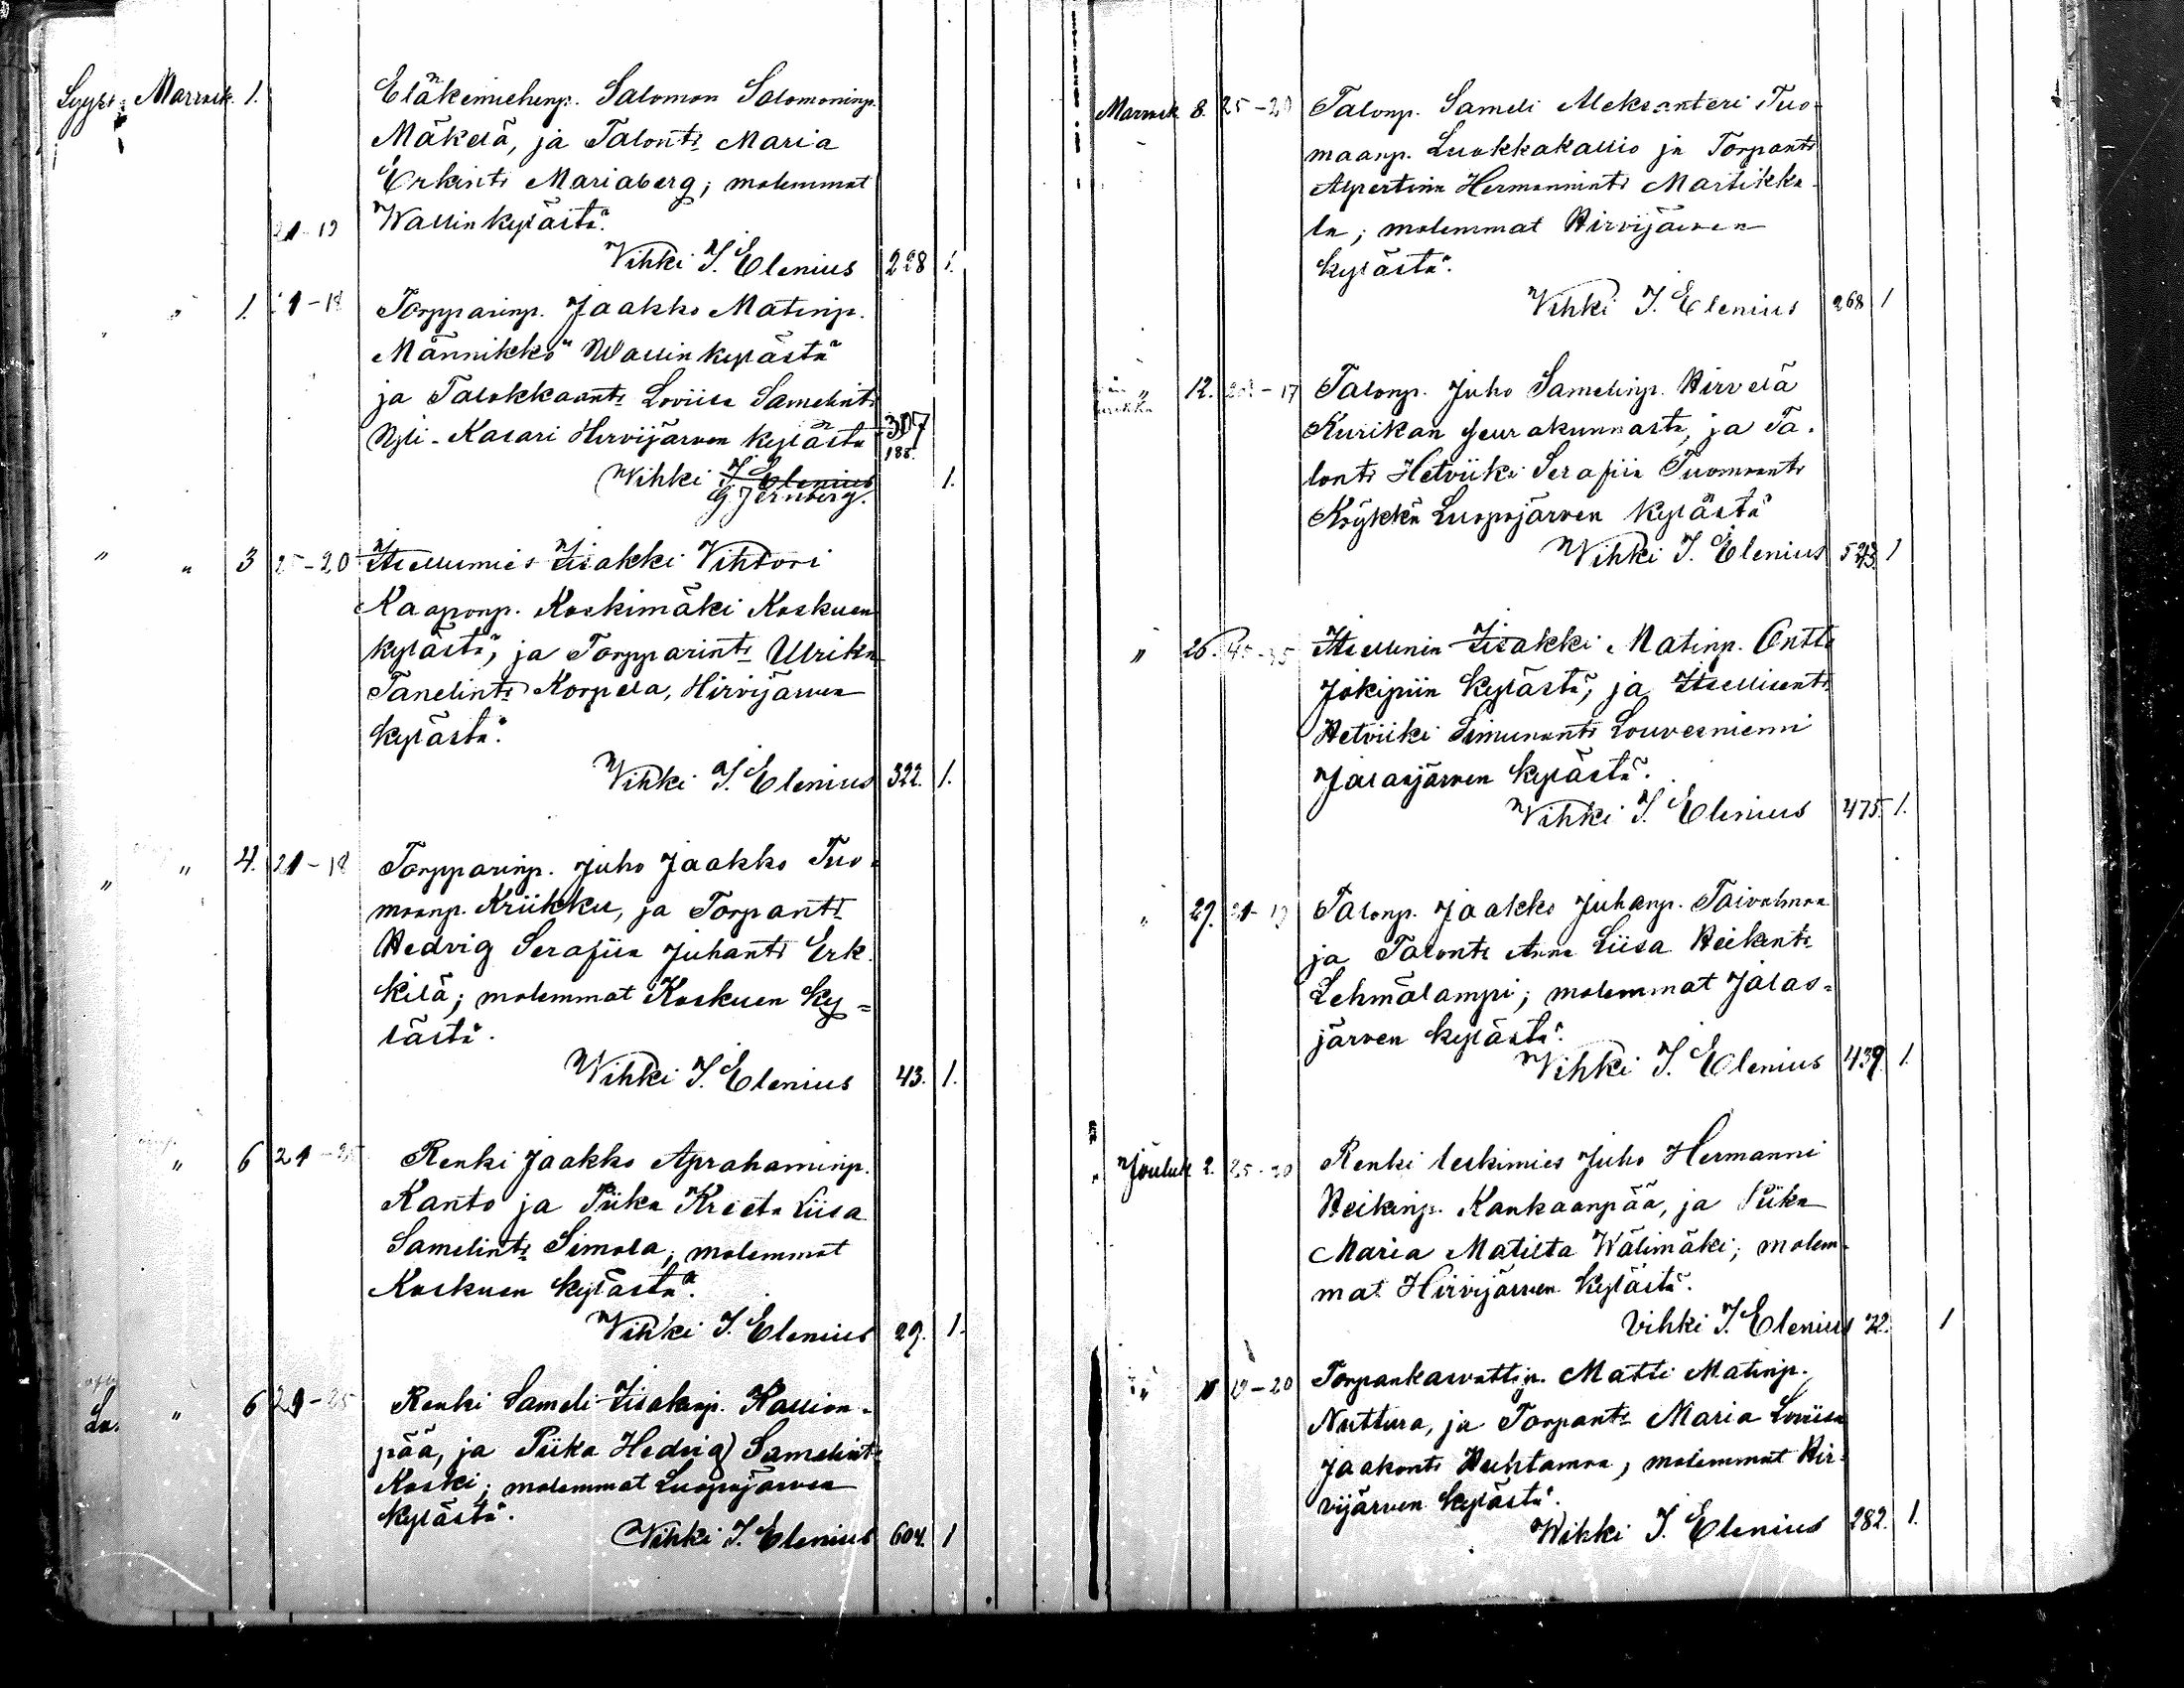 Syysk. Marrask. 1.
Eläkemiehenp. Salomon Salomoninp.
Mäkelä, ja Talont: Maria
Erkint: Mariaberg; molemmat
21-19 Wallin kylästä.
Vihki J. Elenius 228 1.
" 1. 21-18 Torpparinp. Jaakko Matinp.
Männikkö Wallin kylästä
ja Talokkaant: Loviisa Samelint:
Yli-Kasari Hirvijärven kylästä 307
188.
Wihki J. Elenius 1.
G. Jernberg.
" " 3 25-20 Itsellismies Iisakki Vihtori
Kaaponp. Koskimäki Koskuen
kylästä, ja Torpparint: Ulrika
Tanelint: Korpela, Hirvijärven
kylästä.
Vihki J. Elenius 322. 1.
" " 4. 21-18 Torpparinp. Juho Jaakko Tuo-
maanp. Kriikku, ja Torpant:
Hedvig Serafiia Juhant: Erk-
kilä; molemmat Koskuen ky-
lästä.
Wihki J. Elenius 43. 1.
" 6 21-25 Renki Jaakko Aprahaminp.
Kanto ja Piika Kreeta Liisa
Samelint: Simola; molemmat
Koskuen kylästä.
Vihki J. Elenius 29. 1.
" 6 29-25 Renki Sameli Iisakinp. Kallion-
pää, ja Piika Hedvig Samelint:
Koski; molemmat Luopajärven
kylästä.
Vihki J. Elenius 604. 1
Marrask. 8. 25-20 Talonp. Sameli Aleksanteri Tuo-
maanp. Luokkakallio ja Torpant:
Alpertiina Hermannint: Martikka-
la; molemmat Hirvijärven
kylästä.
Vihki J. Elenius 268 1
" 12. -17 Talonp. Juho Samelinp. Hirvelä
Kurikan seurakunnasta, ja Ta-
lont: Hetviiki Serafiia Tuomaant:
Köykkä Luopajärven kylästä
Wihki J. Elenius 523. 1
" 26. 45-35 Itsellinen Iisakki Matinp. Ontto
Jokipiin kylästä, ja Itsellisent:
Hetviiki Simunant: Louvesniemi
Jalasjärven kylästä.
Vihki J. Elenius 475. 1.
" 29. 21-19 Talonp. Jaakko Juhanp. Taivalmaa
ja Talont: Anna Liisa Heikint:
Lehmälampi; molemmat Jalas-
järven kylästä.
Vihki J. Elenius 439. 1.
" Jouluk. 2. 25-30 Renki leskimies Juho Hermanni
Heikinp. Kankaanpää, ja Piika
Maria Matilta Wälimäki; molem-
mat Hirvijärven kylästä.
Vihki J. Elenius 22. 1
" 10 19-20 Torpankasvattip. Matti Matinp.
Nuttura, ja Torpant: Maria Loviisa
Jaakont: Huhtamaa, molemmat Hir-
vijärven kylästä.
Wihki J. Elenius 282. 1.